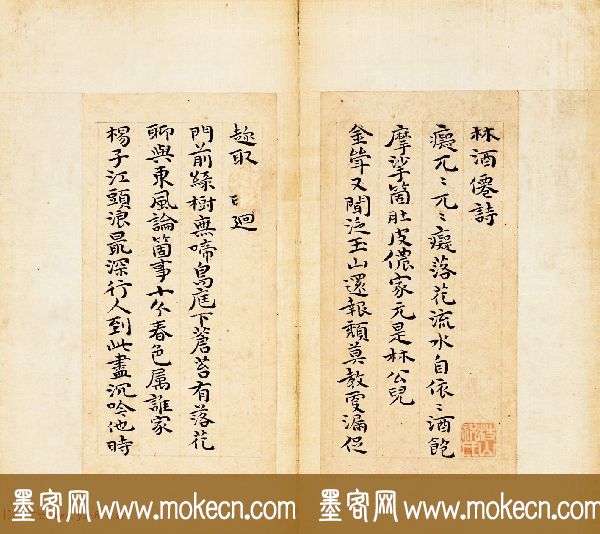 林酒僊詩
癡兀〻兀〻癡落花流水自依〻酒飽
摩挲箇肚皮儂家元是林公兒
金斝又聞泛玉山還報頹莫教更漏促
趂取 廻
門前綠樹無啼鳥庭下蒼苔有落花
聊與東風論箇事十分春色属誰家
楊子江頭浪最深行人到此盡沉吟他時
墨客网 www.mokecn.com 墨客网 www.mokecn.com